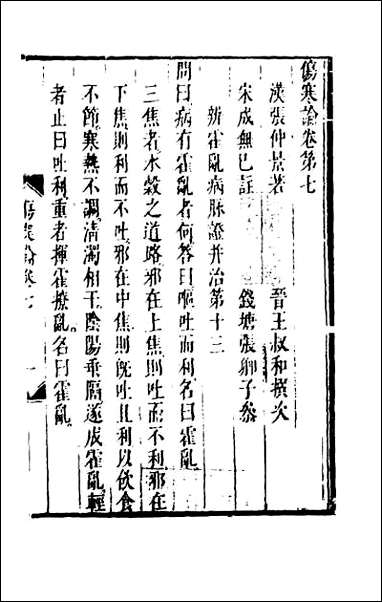 傷寒論卷第七
漢張仲景著　晉王叔和撰次
宋成無已註　錢塘張卿子參
辨霍亂病脉證并治第十三
問曰病有霍亂者何答曰嘔吐而利名曰霍亂
三焦者水穀之道路邪在上焦則吐而不利邪在
下焦則利而不吐邪在中焦則旣吐且利以飲食
不節寒熱不調清濁相干陰陽乖隔遂成霍亂輕
者止曰吐利重者揮霍撩亂名曰霍亂
傷寒論卷七
一